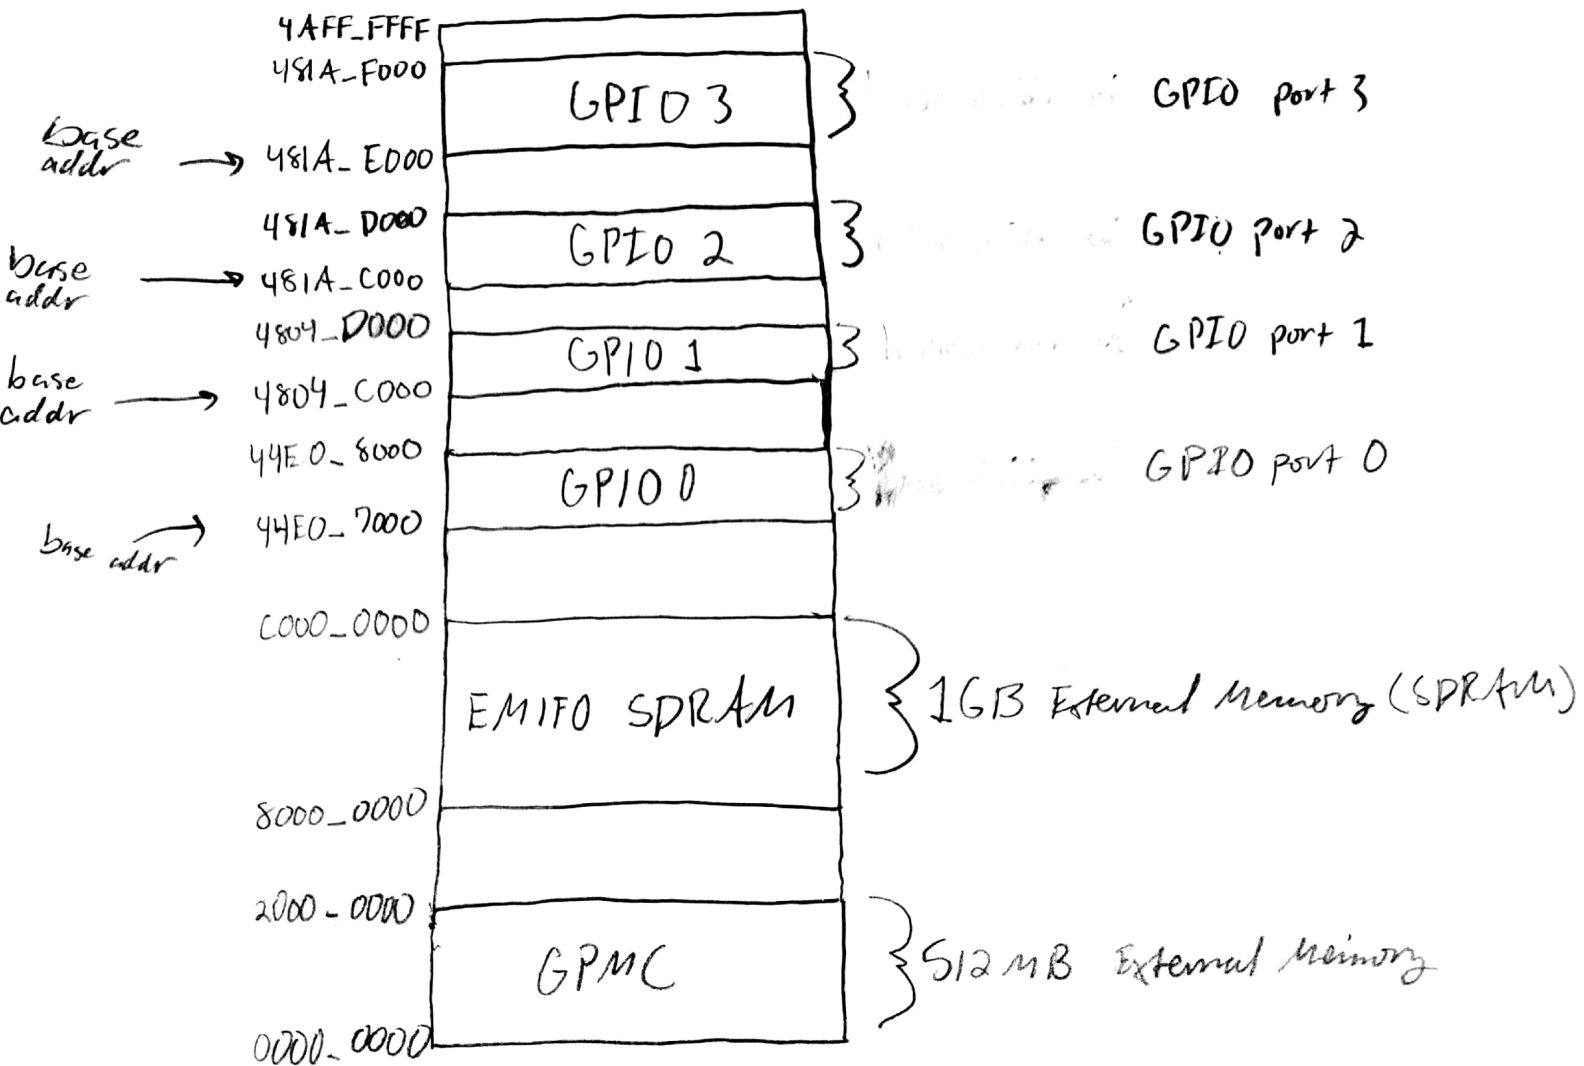 4AFF_FFFF
481A_F000
GPIO 3
GPIO port 3
base
addr
481A_E000
481A_D000
GPIO 2
GPIO port 2
base
addr
481A_C000
4804_D000
GPIO 1
GPIO port 1
base
addr
4804_C000
44E0_8000
GPIO 0
GPIO port 0
base addr
44E0_7000
C000_0000
EMIFO SDRAM
1GB External Memory (SDRAM)
8000_0000
2000_0000
GPMC
512MB External Memory
0000_0000